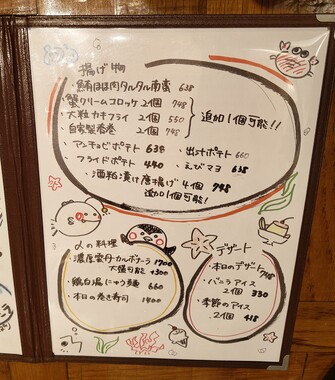 揚げ物
・鮪ほほ肉タルタル南蛮 638
・蟹クリームコロッケ 2個 748
・大粒カキフライ 2個 550
・自家製春巻 2個 748
追加1個可能!!
・アンチョビポテト 638
・出汁ポテト 660
・フライドポテト 440
・えびマヨ 638
・酒粕漬け唐揚げ 4個 748
追加1個可能!
〆の料理
・濃厚雲丹カルボナーラ 1700
大盛可能 +300
・鶏白湯にゅう麺 660
・本日の巻き寿司 1400
デザート
・本日のデザート 748
・バニラアイス
2個 330
・季節のアイス
2個 418